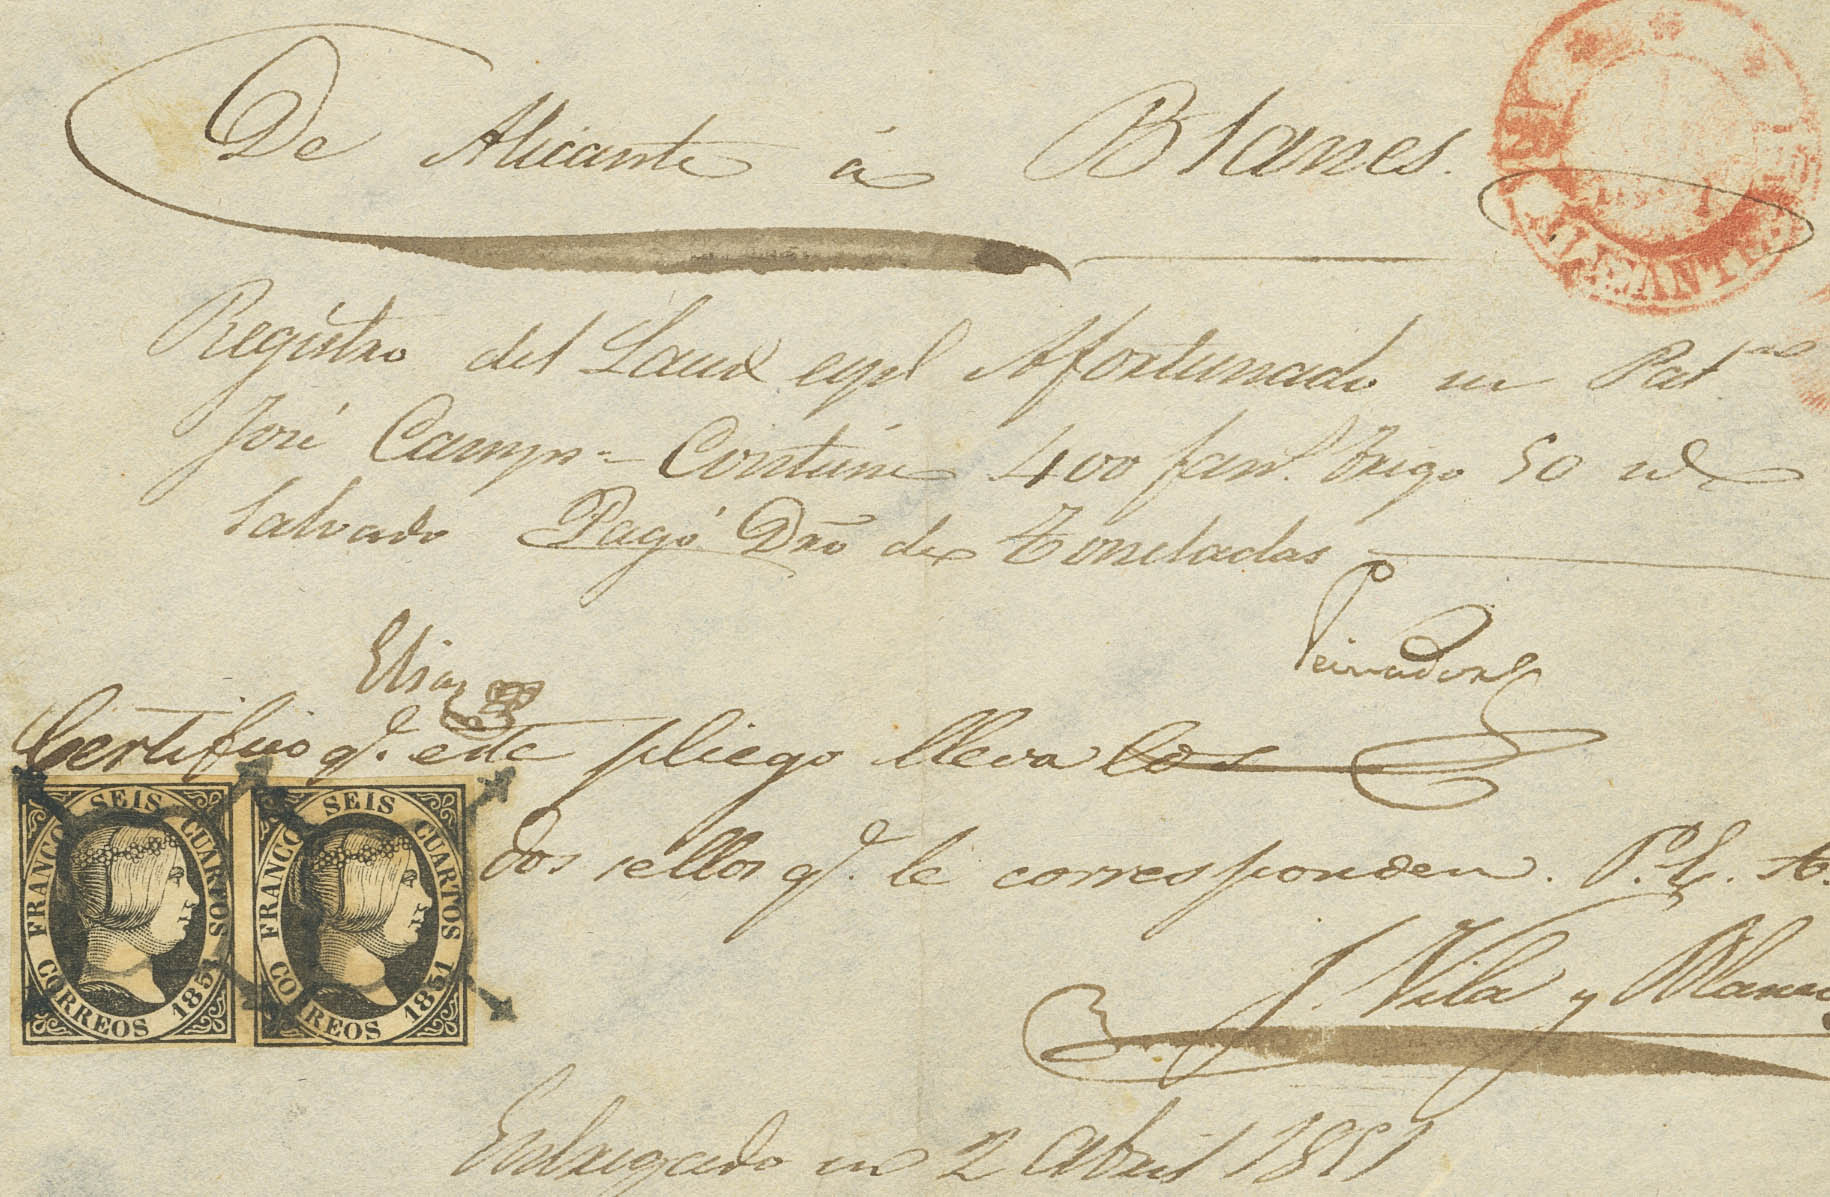 De Alicante á Blanes.
ALICANTE
Registro del Laud espl Afortunado su Patron
José Camps - Contiene 400 fans. trigo 50 id
Salvado Pagó Dro de Toneladas
Elias
Peinador
Certifico q. este pliego lleva los
dos sellos q. le corresponden. P. E. A.
J. Vila y Blanco
FRANCO SEIS CUARTOS
CORREOS 1851
FRANCO SEIS CUARTOS
CORREOS 1851
Entregado en 2 Abril 1851